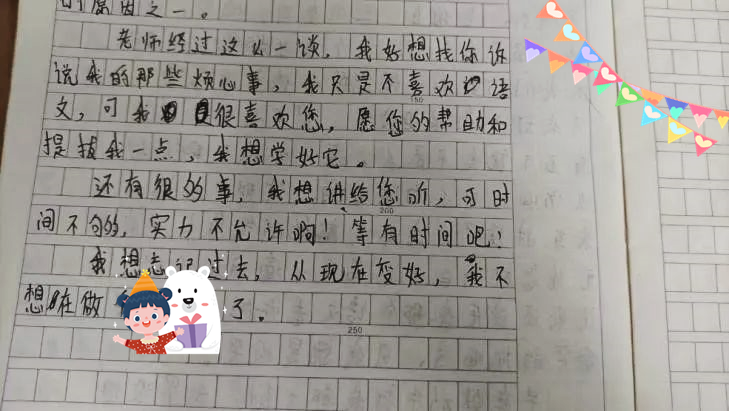 的原因之一。
老师经过这么一谈，我好想找你诉
说我的那些烦心事，我只是不喜欢语
文，可我很喜欢您，愿您的帮助和
提拔我一点，我想学好它。
还有很的事，我想讲给您听，可时
间不句的，实力不允许啊！等有时间吧！
我想忘记过去，从现在变好，我不
想在做了。
150
200
250